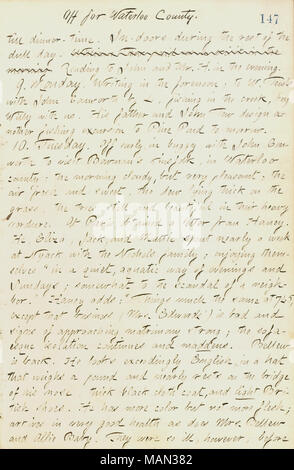 Off for Waterloo County.
147
till dinner-time. In-doors during the rest of the
dull day.
Reading to John and Mr. H. in the evening.
9. Monday. Writing in the forenoon; to W.
with John Conworth by —, fishing in the creek, boy
with us. His father and John Tew design
another fishing excursion to Pine Pond to-morrow.
10. Tuesday. Off early in buggy with John Con-
worth to visit Bowman's , in Waterloo
county; the morning cloudy, but very pleasant; the
air fresh and sweet, the dew lying thick on the
grass, the trees still and beautiful in their heavy
verdure. At Paris I find a letter from Haney.
He, Eliza, Jack and Mattie spent nearly a week
at Nyack with the Nichols family; enjoying them-
selves "in a quiet, aquatic way of evenings and
Sundays; somewhat to the scandal of a neigh-
bor." Haney adds: "Things much the same at 745,
except that business (Mrs. Edwards') is bad and
signs of approaching matrimony strong; the
isolation continues and maddens. Bellew
is back. He looks exceedingly English, in a hat
that weighs a pound and nearly rests on the bridge
of his nose, thick black cloth coat, and light Bri-
tish shoes. He has more color but not more flesh;
arrives in very good health as does Mrs. Bellew
and Allie Barry. They were so ill, however, before
alamy
Image ID: MAN382
www.alamy.com